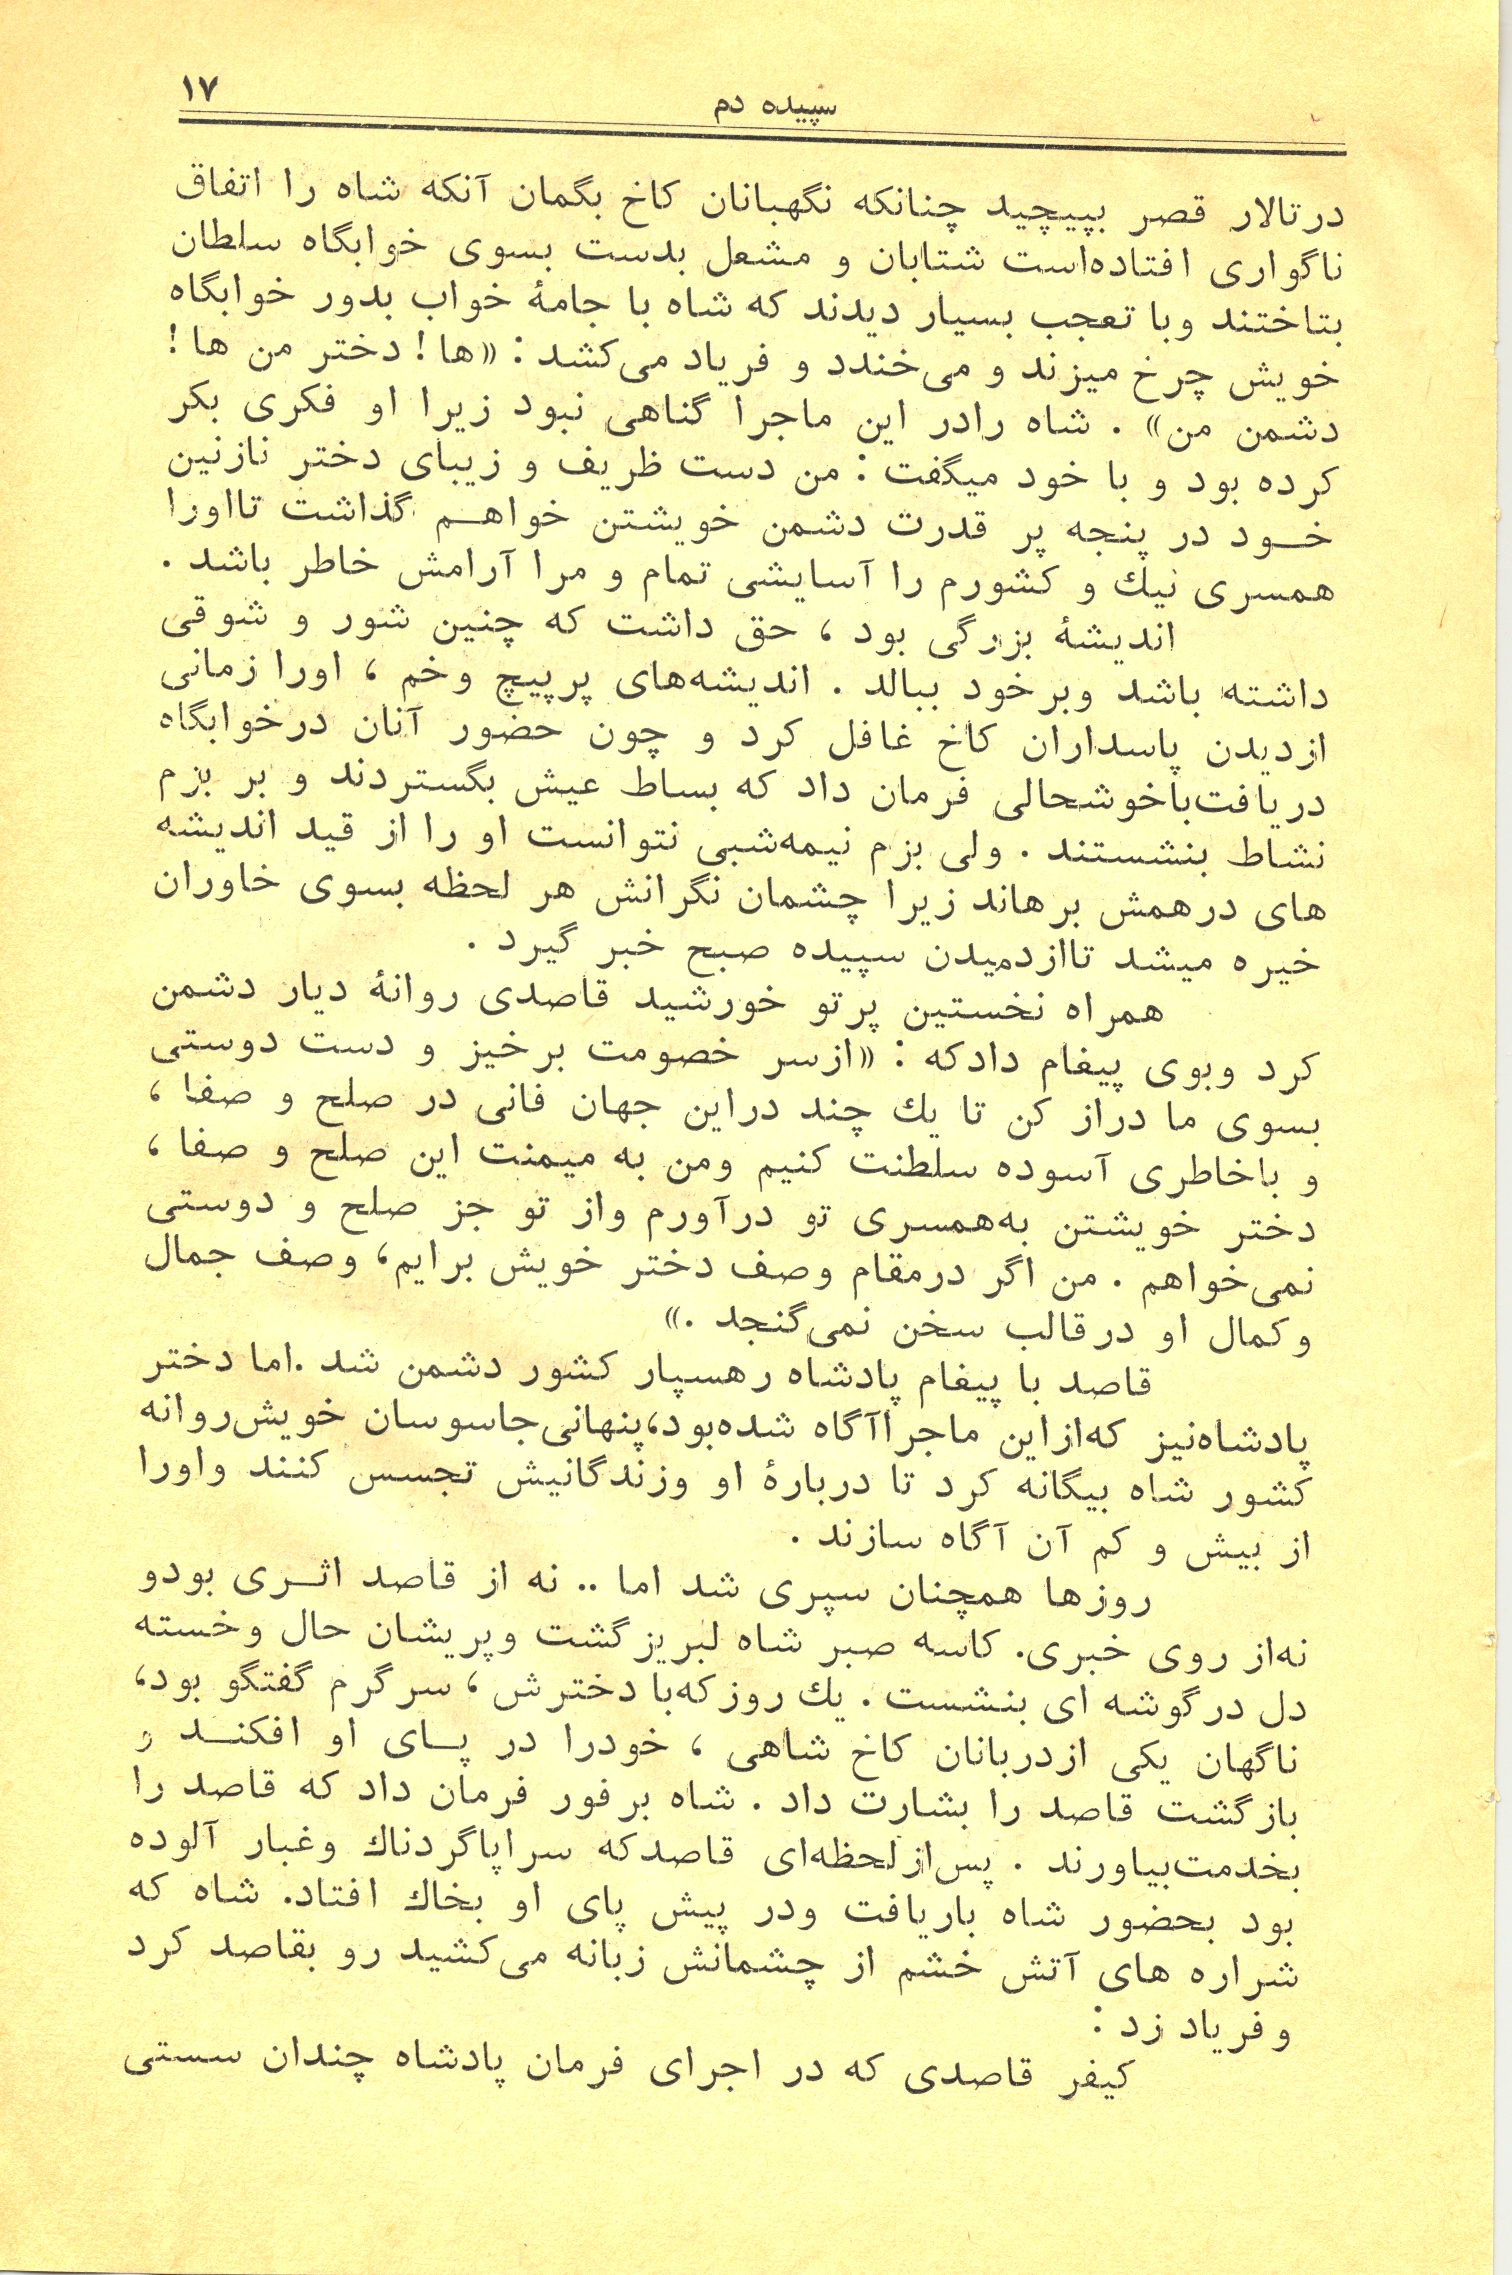 سپیده دم
۱۷
درتالار قصر بپیچید چنانکه نگهبانان کاخ بگمان آنکه شاه را اتفاق
ناگواری افتاده‌است شتابان و مشعل بدست بسوی خوابگاه سلطان
بتاختند وبا تعجب بسیار دیدند که شاه با جامهٔ خواب بدور خوابگاه
خویش چرخ میزند و می‌خندد و فریاد می‌کشد : «ها ! دختر من ها !
دشمن من» . شاه رادر این ماجرا گناهی نبود زیرا او فکری بکر
کرده بود و با خود میگفت : من دست ظریف و زیبای دختر نازنین
خــود در پنجه پر قدرت دشمن خویشتن خواهــم گذاشت تااورا
همسری نیك و کشورم را آسایشی تمام و مرا آرامش خاطر باشد .
اندیشهٔ بزرگی بود ، حق داشت که چنین شور و شوقی
داشته باشد وبرخود ببالد . اندیشه‌های پرپیچ وخم ، اورا زمانی
ازدیدن پاسداران کاخ غافل کرد و چون حضور آنان درخوابگاه
دریافت‌باخوشحالی فرمان داد که بساط عیش بگستردند و بر بزم
نشاط بنشستند . ولی بزم نیمه‌شبی نتوانست او را از قید اندیشه
های درهمش برهاند زیرا چشمان نگرانش هر لحظه بسوی خاوران
خیره میشد تاازدمیدن سپیده صبح خبر گیرد .
همراه نخستین پرتو خورشید قاصدی روانهٔ دیار دشمن
کرد وبوی پیغام دادکه : «ازسر خصومت برخیز و دست دوستی
بسوی ما دراز کن تا یك چند دراین جهان فانی در صلح و صفا ،
و باخاطری آسوده سلطنت کنیم ومن به میمنت این صلح و صفا ،
دختر خویشتن به‌همسری تو درآورم واز تو جز صلح و دوستی
نمی‌خواهم . من اگر درمقام وصف دختر خویش برایم، وصف جمال
وکمال او درقالب سخن نمی‌گنجد .»
قاصد با پیغام پادشاه رهسپار کشور دشمن شد .اما دختر
پادشاه‌نیز که‌ازاین ماجراآگاه شده‌بود،پنهانی‌جاسوسان خویش‌روانه
کشور شاه بیگانه کرد تا دربارهٔ او وزندگانیش تجسس کنند واورا
از بیش و کم آن آگاه سازند .
روزها همچنان سپری شد اما .. نه از قاصد اثــری بودو
نه‌از روی خبری. کاسه صبر شاه لبریزگشت وپریشان حال وخسته
دل درگوشه ای بنشست . یك روزکه‌با دخترش ، سرگرم گفتگو بود،
ناگهان یکی ازدربانان کاخ شاهی ، خودرا در پــای او افکنــد و
بازگشت قاصد را بشارت داد . شاه برفور فرمان داد که قاصد را
بخدمت‌بیاورند . پس‌از‌لحظه‌ای قاصدکه سراپاگردناك وغبار آلوده
بود بحضور شاه باریافت ودر پیش پای او بخاك افتاد. شاه که
شراره های آتش خشم از چشمانش زبانه می‌کشید رو بقاصد کرد
و فریاد زد :
کیفر قاصدی که در اجرای فرمان پادشاه چندان سستی